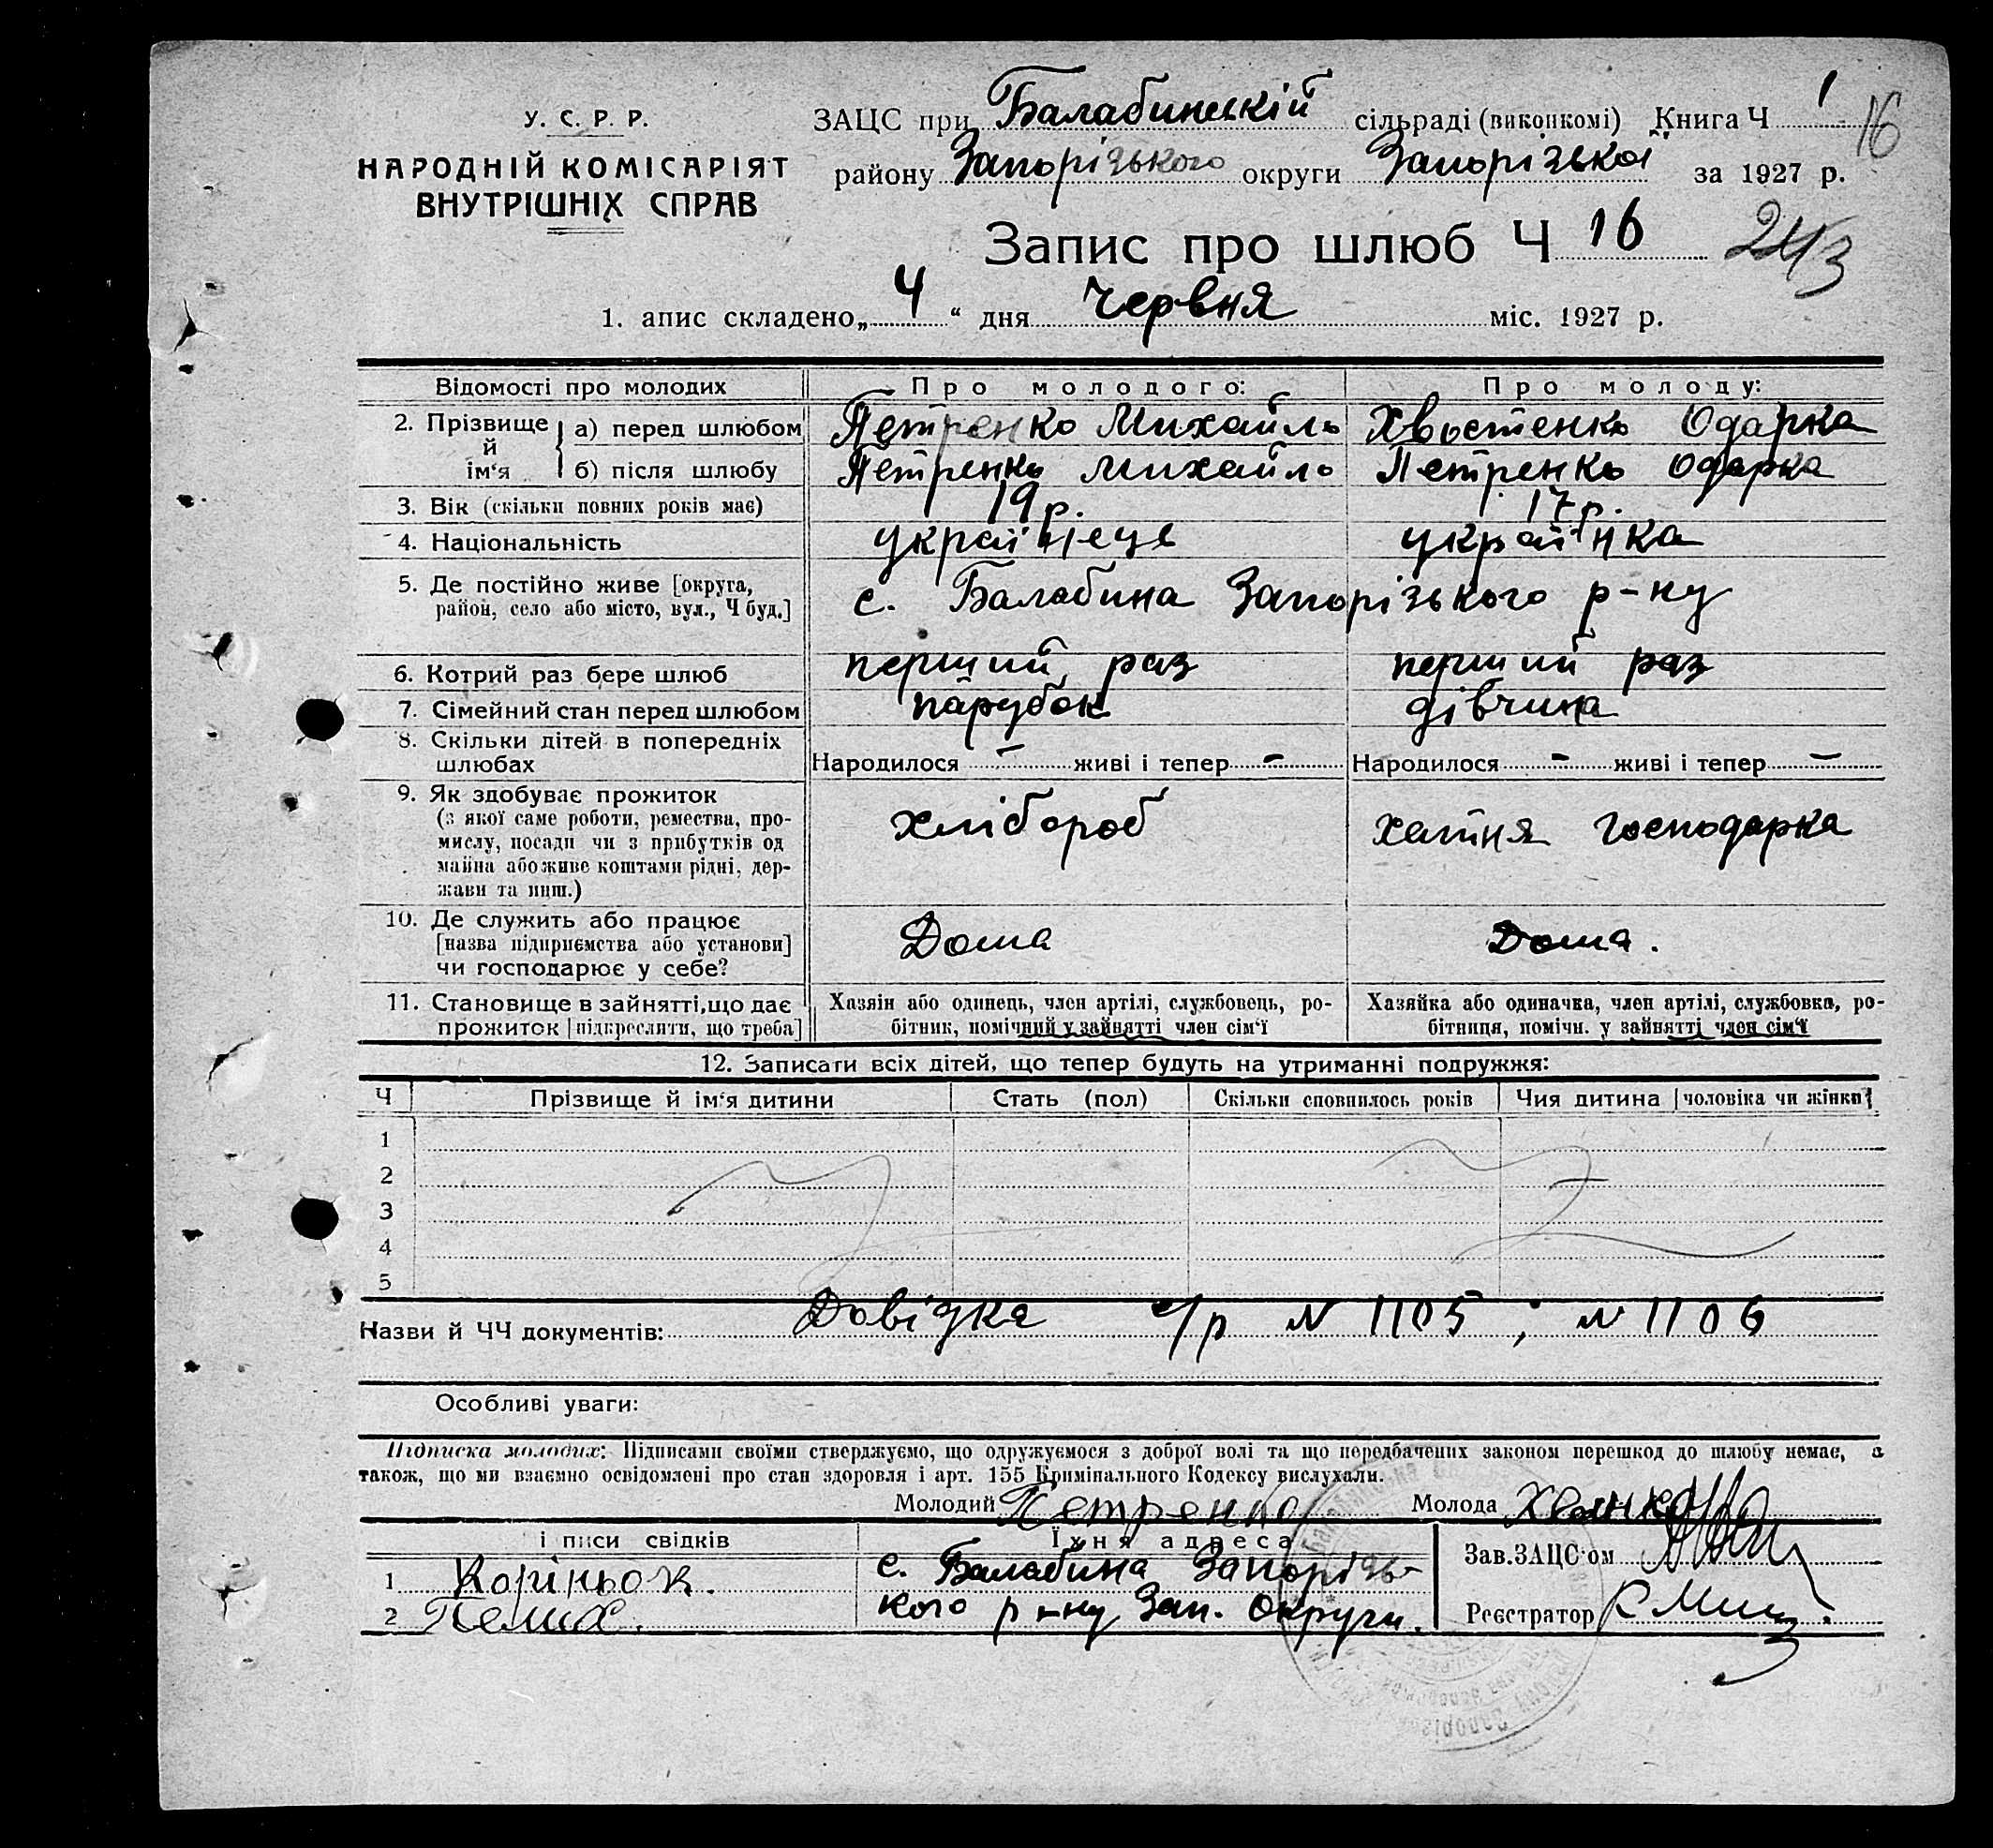 У. С. Р. Р.
НАРОДНІЙ КОМІСАРІЯТ
ВНУТРІШНІХ СПРАВ
ЗАЦС при Балабинській сільраді (виконкомі) Книга Ч 1
16
району Запорізького округи Запорізької за 1927 р.
Запис про шлюб Ч 16
243
1. апис складено „ 4 “ дня Червня міс. 1927 р.
Відомості про молодих Про молодого: Про молоду:
2. Прізвище й ім‘я а) перед шлюбом Петренко Михайло Хвостенко Одарка
б) після шлюбу Петренко Михайло Петренко Одарка
3. Вік (скільки повних років має) 19 р. 17 р.
4. Національність українець українка
5. Де постійно живе [округа, район, село або місто, вул., Ч буд.] с. Балабина Запорізького р-ну
6. Котрий раз бере шлюб перший раз перший раз
7. Сімейний стан перед шлюбом парубок дівчина
8. Скільки дітей в попередніх шлюбах Народилося – живі і тепер – Народилося – живі і тепер –
9. Як здобуває прожиток хлібороб хатня господарка
(з якої саме роботи, ремества, про-
мислу, посади чи з прибутків од
майна або живе коштами рідні, дер-
жави та инш.)
10. Де служить або працює Дома Дома.
[назва підприємства або установи]
чи господарює у себе?
11. Становище в зайнятті, що дає прожиток [підкреслити, що треба]
Хазяін або одинець, член артілі, службовець, ро-
бітник, помічний у зайнятті член сім‘ї
Хазяйка або одиначка, член артілі, службовка, ро-
бітниця, помічн. у зайнятті член сім‘ї
12. Записати всіх дітей, що тепер будуть на утриманні подружжя:
Ч Прізвище й ім‘я дитини Стать (пол) Скільки сповнилось років Чия дитина [чоловіка чи жінки]
1
2
3
4
5
Назви й ЧЧ документів: Довідка с/р N 1105, N 1106
Особливі уваги:
Підписка молодих: Підписами своїми стверджуємо, що одружуємося з доброї волі та що передбачених законом перешкод до шлюбу немає, а
також, що ми взаємно освідомлені про стан здоровля і арт. 155 Кримінального Кодексу вислухали.
Молодий Петренко Молода
і писи свідків Їхня адреса
1 Коріньок. с. Балабина Запорізь-
2 кого р-ну Зап. Округи.
Зав.ЗАЦС‘ом
Реєстратор